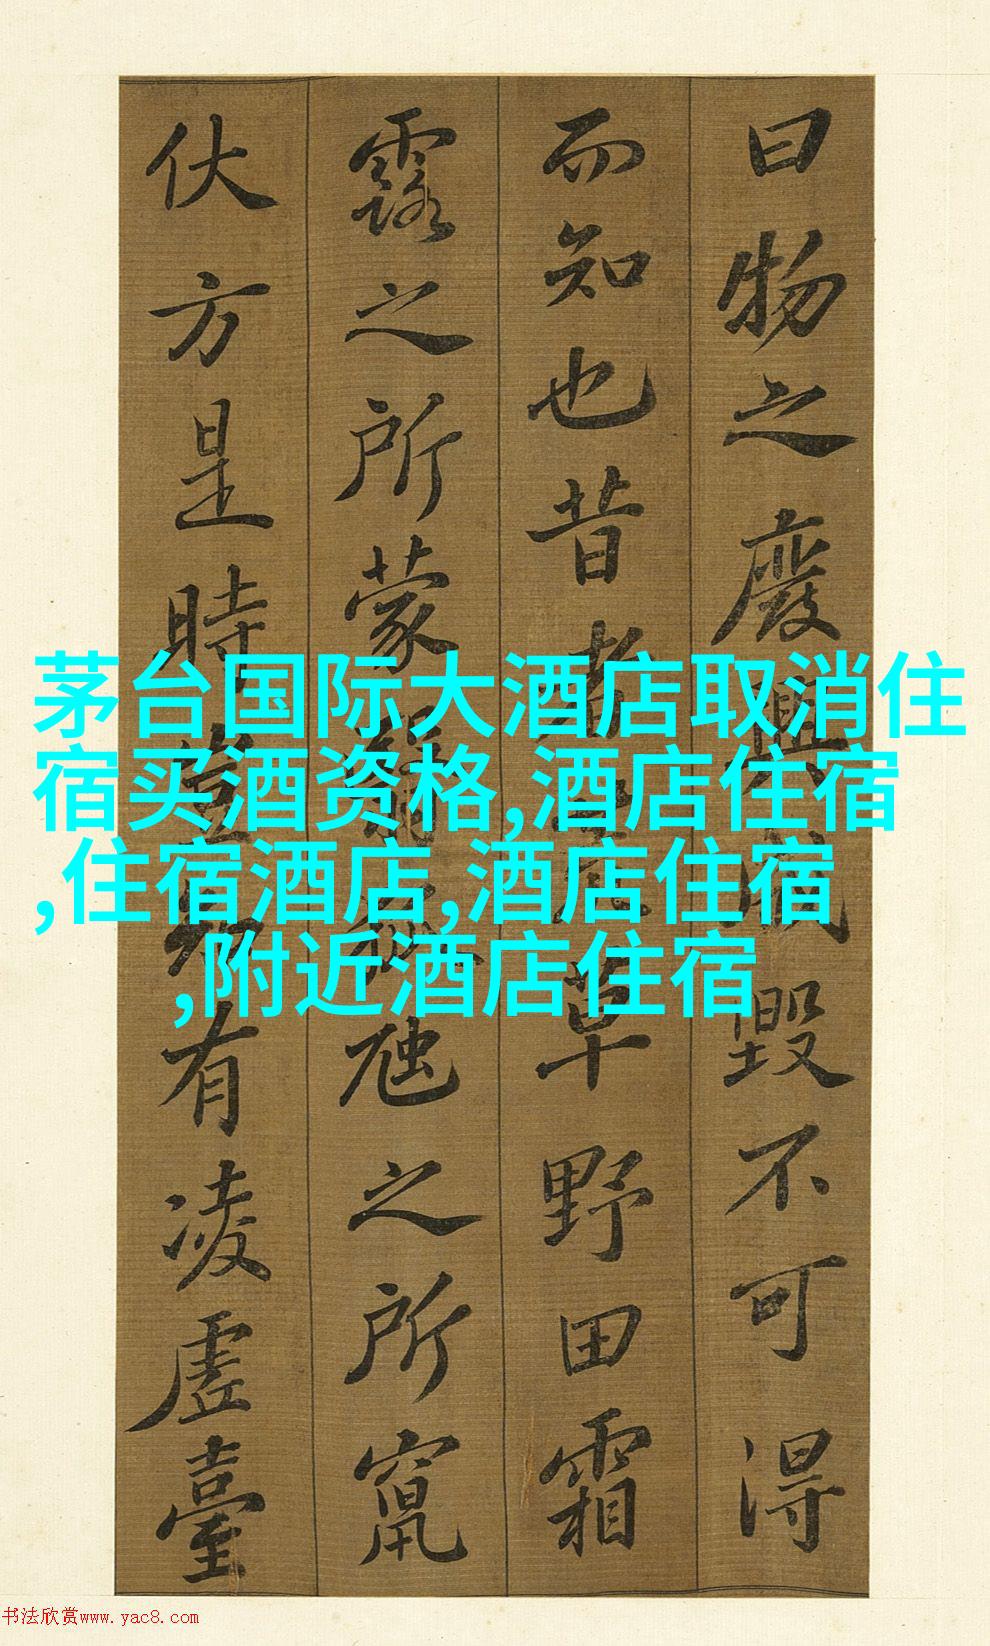 曰物之廢興成毀不可得
而知也昔者荒草野田霜
露之所蒙翳狐虺之所竄
伏方是時豈知有凌虛臺
茅台国际大酒店取消住
宿买酒资格,酒店住宿
,住宿酒店,酒店住宿
,附近酒店住宿
书法欣赏www.yac8.com